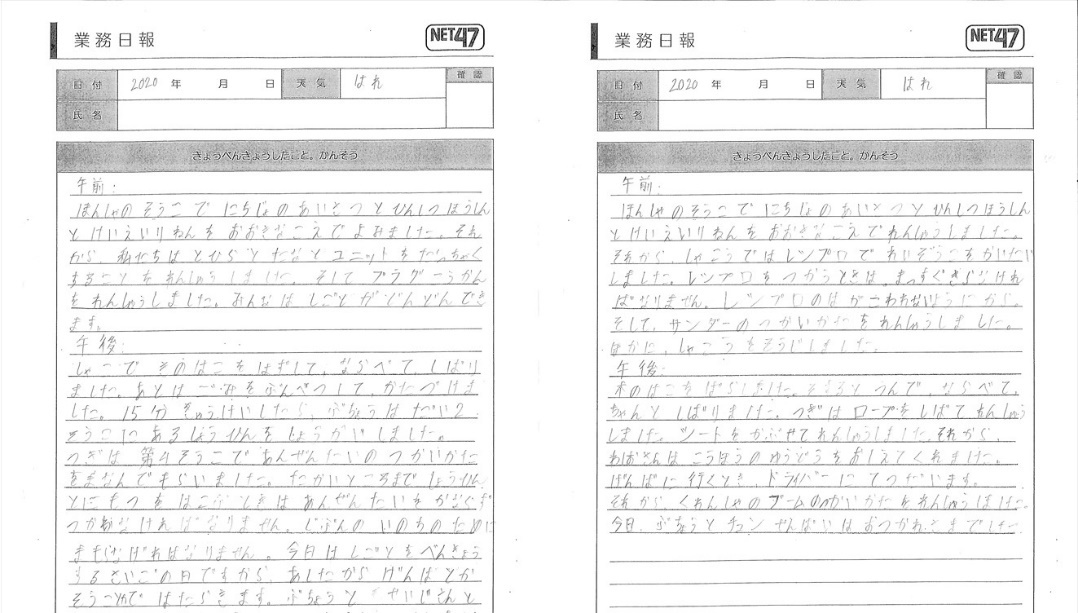 業務日報
NET47
日付 2020 年 月 日 天気 はれ 確認
氏名
きょうべんきょうしたこと。かんそう
午前:
ほんしゃのそうこで にちじのあいさつと ひんしつほうしん
とけいえいりねんを おおきなこえでよみました。それ
から、私たちは とびらとたなと ユニットをだっちゃく
することをれんしゅうしました。そして プラグーうかん
をれんしゅうしました。みんなは しごとがどんどんでき
ます。
午後:
しゃこで そのはこをはずして、ならべて しばり
ました。あとは ごみをぶんべつして、かたづけま
した。15分 きゅうけいしたら、ぶちょうは だい2
そうこにある しょうひんを しょうかいしました。
つぎは、第4そうこで あんぜんたいの つかいかた
をまなんでもらいました。たかいところまで しょうひん
とにもつを はこぶときは あんぜんたいを かならず
つかわなければなりません。じぶんの いのちのために
まもらなければなりません。今日は しごとをべんきょう
するさいごの日ですから、あしたから げんばとか
そうことかで はたらきます。ぶちょうと
業務日報
NET47
日付 2020 年 月 日 天気 はれ 確認
氏名
きょうべんきょうしたこと。かんそう
午前:
ほんしゃのそうこで にちじの あいさつと ひんしつほうしん
とけいえいりねんを おおきなこえでれんしゅうしました。
それから、しゃこうではレンプロで れいぞうこをかいたい
しました。レンプロをつかうときは、まっすぐきらなけれ
ばなりません。レンプロのはが こわれないようにから。
そして、サンダーのつかいかたをれんしゅうしました。
ほかに、しゃこうもそうじしました。
午後:
木のはこをばらしました。そろえると つんで、ならべて、
ちゃんと しばりました。つぎは ロープをしばて れんしゅう
しました。シートをかぶせてれんしゅうしました。それから、
わおさんは こうほうのゆうどうをおしえてくれました。
げんばに行くとき、ドライバーに てつだいます。
それから くれんしゃのブームのつかいかたをれんしゅうしました。
今日、ぶちょうとチョンせんぱいは おつかれさまでした